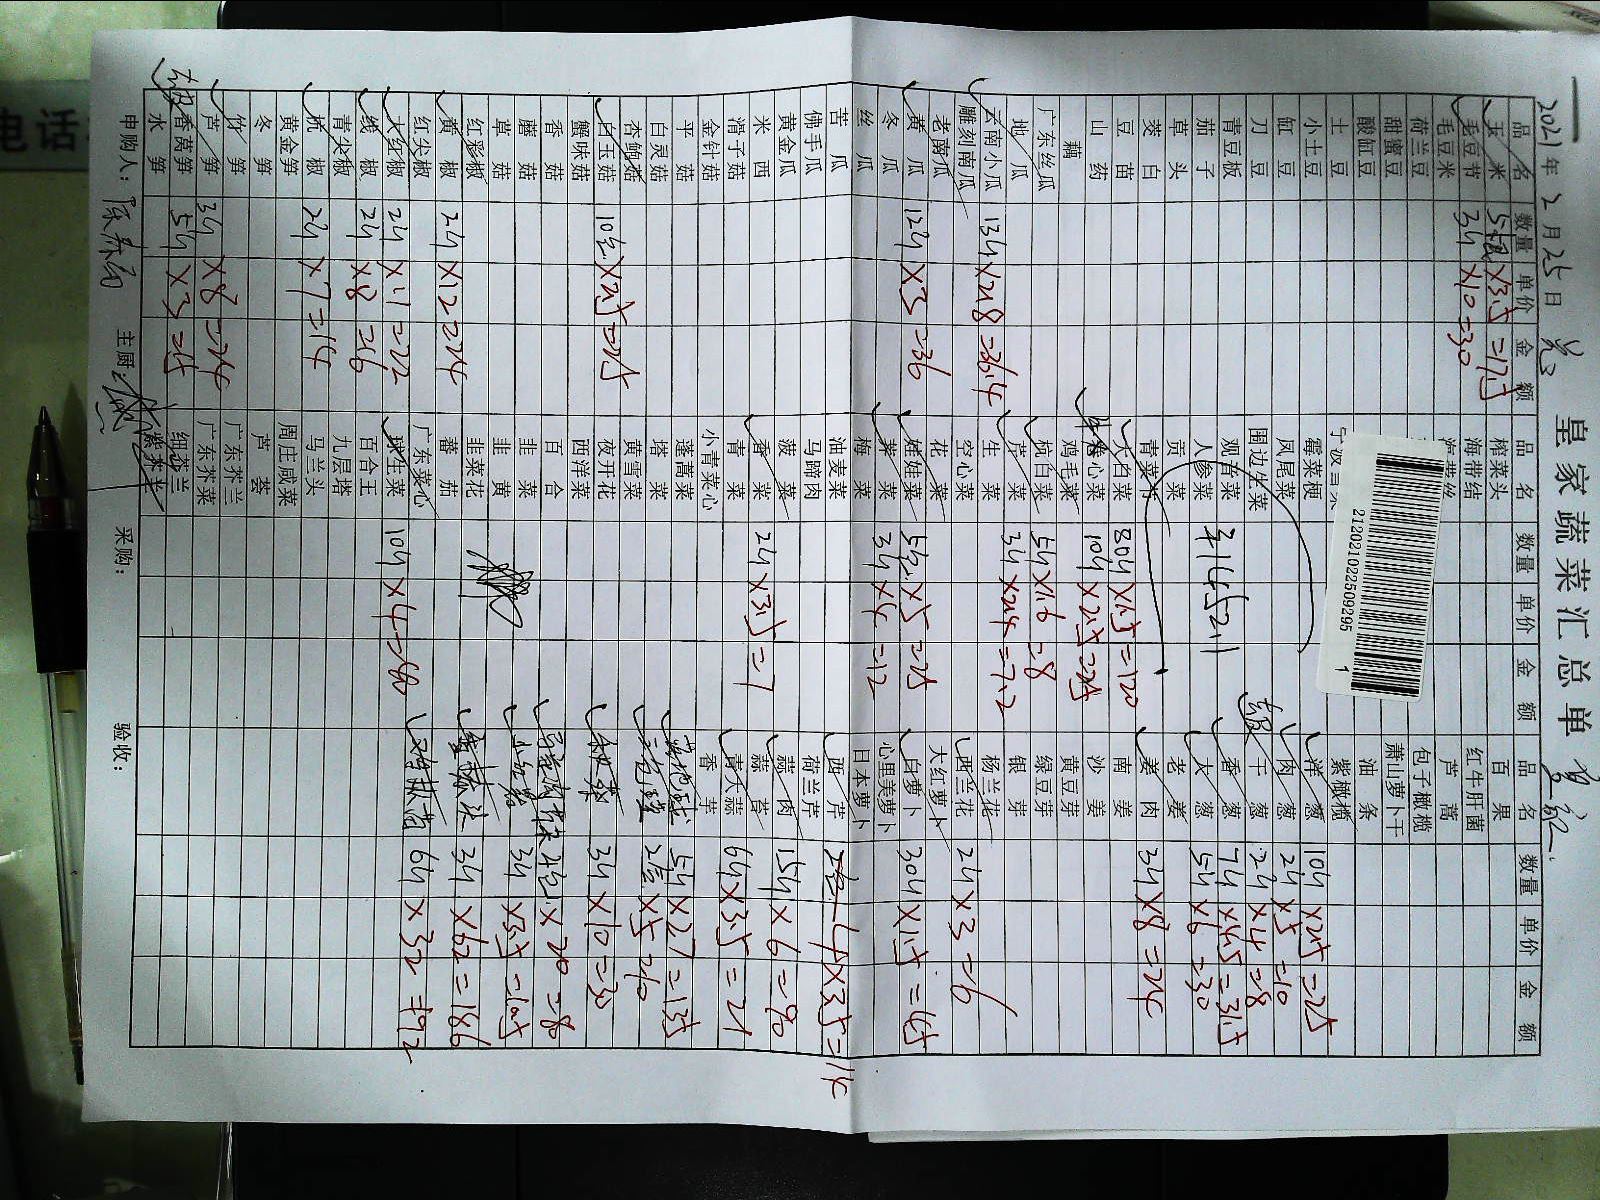 皇家蔬菜汇总单
2021年2月25日
品名 数量 单价 金额
玉米 ×3.5=17.5
毛豆节 3斤 ×10=30
毛豆米
荷兰豆
甜蜜豆
酸缸豆
土豆
小土豆
缸豆
刀豆
青豆板
茄子
草头
茭白
豆苗
山药
藕
广东丝瓜
地瓜
云南小瓜 13斤×2.8=36.4
雕刻南瓜
老南瓜
黄瓜 12斤×3=36
冬瓜
丝瓜
苦瓜
佛手瓜
黄金瓜
米西
滑子菇
金针菇
平菇
白灵菇
杏鲍菇
白玉菇 10包×2.5=25
蟹味菇
香菇
藤菇
草菇
红彩椒
黄椒 2斤×12=24
红尖椒
大红椒 2斤×11=22
线椒 2斤×8=16
青尖椒
杭椒 2斤×7=14
黄金笋
冬笋
竹笋
芦笋 3斤×8=24
香莴笋 5斤×3=15
水笋
品名 数量 单价 金额
榨菜头
海带结
海带丝
霉菜梗
凤尾菜
围边生菜
观音菜
人参菜
贡菜
青菜
大白菜 80斤×1.5=120
卷心菜 10斤×2.5=25
鸡毛菜
杭白菜 5斤×1.6=8
芹菜 3斤×2.4=7.2
生菜
空心菜
花菜
娃娃菜 5包×5=25
芽菜 3斤×4=12
梅菜
油麦菜
马蹄肉
菠菜
香菜 2斤×3.5=7
青菜
小青菜心
蓬蒿菜
塔菜
黄雪菜
夜开花
西洋菜
百合
韭菜
韭黄
韭菜花
蕃茄
广东菜心
球生菜 10斤×4=40
百合王
九层塔
马兰头
周庄咸菜
芦荟
广东芥兰
广东芥菜
细芥兰
紫芥兰
共1452.1
品名 数量 单价 金额
百果
红牛肝菌
芦蒿
包子橄榄
萧山萝卜干
油条
紫橄榄
洋葱 10斤×2.5=25
肉葱 2斤×5=10
干葱 2斤×4=8
香葱 7斤×4.5=31.5
大葱 5斤×6=30
老姜
姜肉 3斤×8=24
南姜
沙姜
黄豆芽
绿豆芽
银芽
杨兰花
西兰花 2斤×3=6
大红萝卜
白萝卜 30斤×1.5=45
心里美萝卜
日本萝卜
荷兰芹
西芹 4×3.5=14
蒜肉 15斤×6=90
蒜苔
青大蒜 6斤×3.5=21
香芋
5斤×27=135
×5=10
3斤×10=30
×20=80
小红 3斤×3.5=10.5
3斤×62=186
6斤×32=192
申购人： 主厨： 采购： 验收：
212021022509295 1
电话